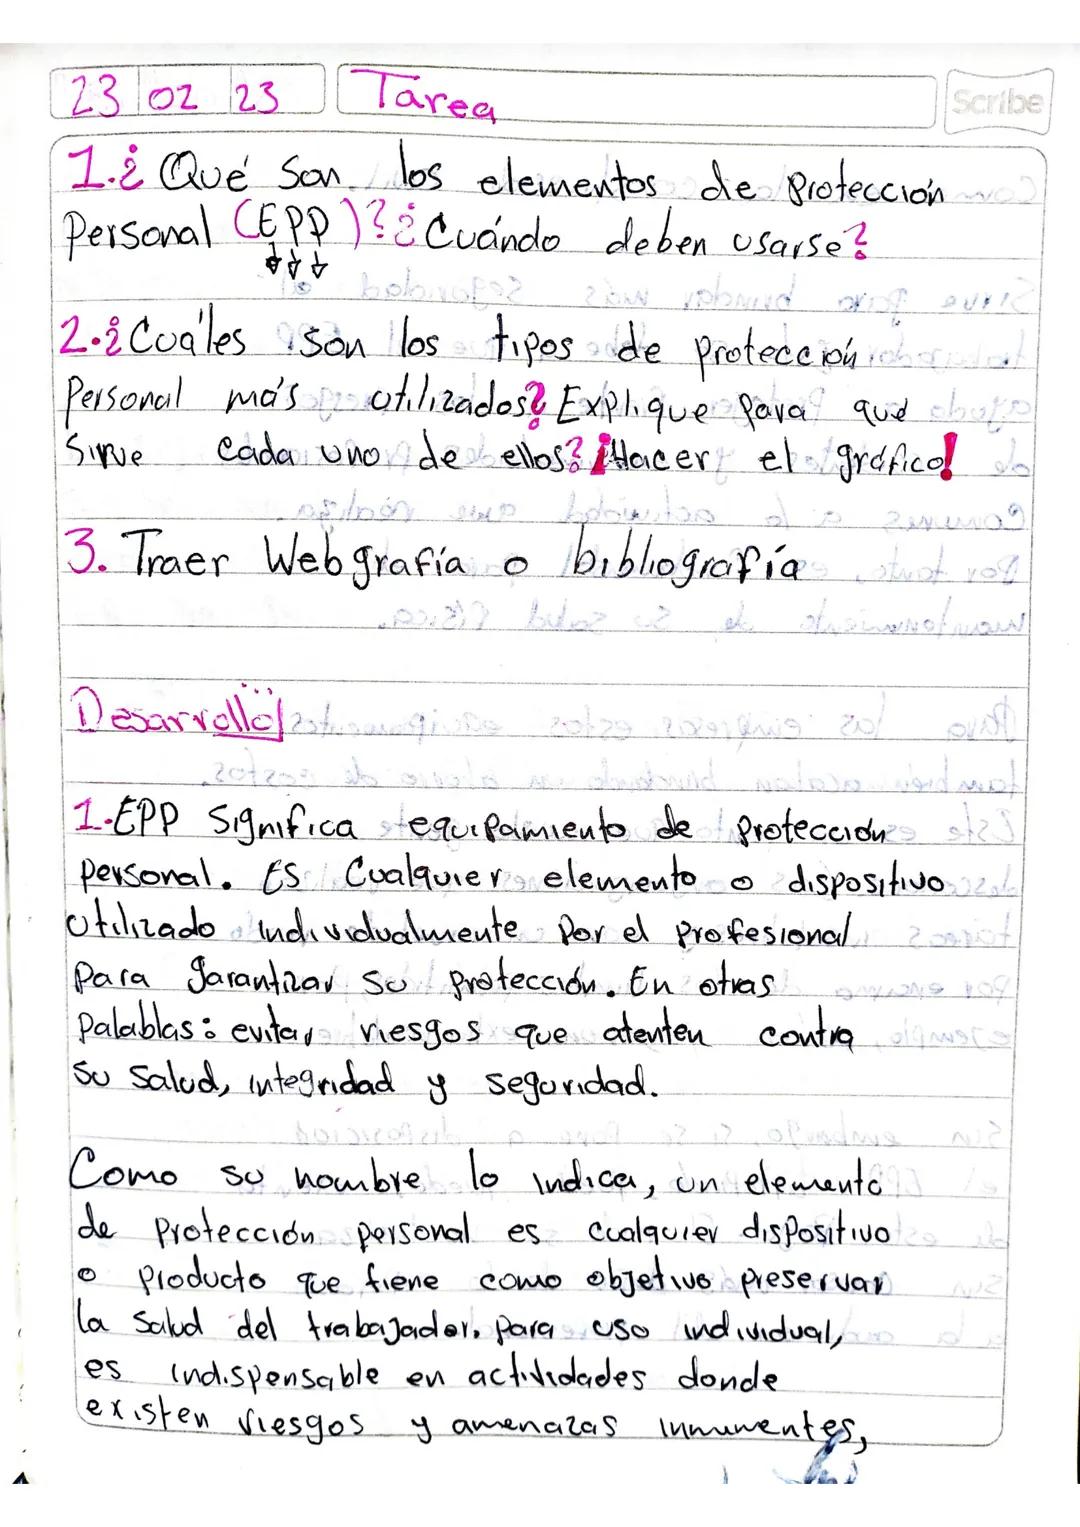 23 02 23 Tarea
Scribe
1.¿Qué son los elementos de protección
Personal (EPP)?¿Cuándo deben usarse?
2.¿Cuáles son los tipos de protección
Personal más utilizados? Explique para qué
sirve cada uno de ellos? ¡Hacer el gráfico!
3. Traer Webgrafía o bibliografía
Desarrollo
1.EPP Significa equipamiento de protección
personal. Es Cualquier elemento o dispositivo
utilizado individualmente por el profesional
para garantizar su protección. En otras
palablas: evitar riesgos que atenten contra
su salud, integridad y seguridad.
Como su nombre lo indica, un elemento
de protección personal es cualquier dispositivo
o producto que tiene como objetivo preservar
la salud del trabajador. para uso individual,
es indispensable en actividades donde
existen riesgos y amenazas inminentes,